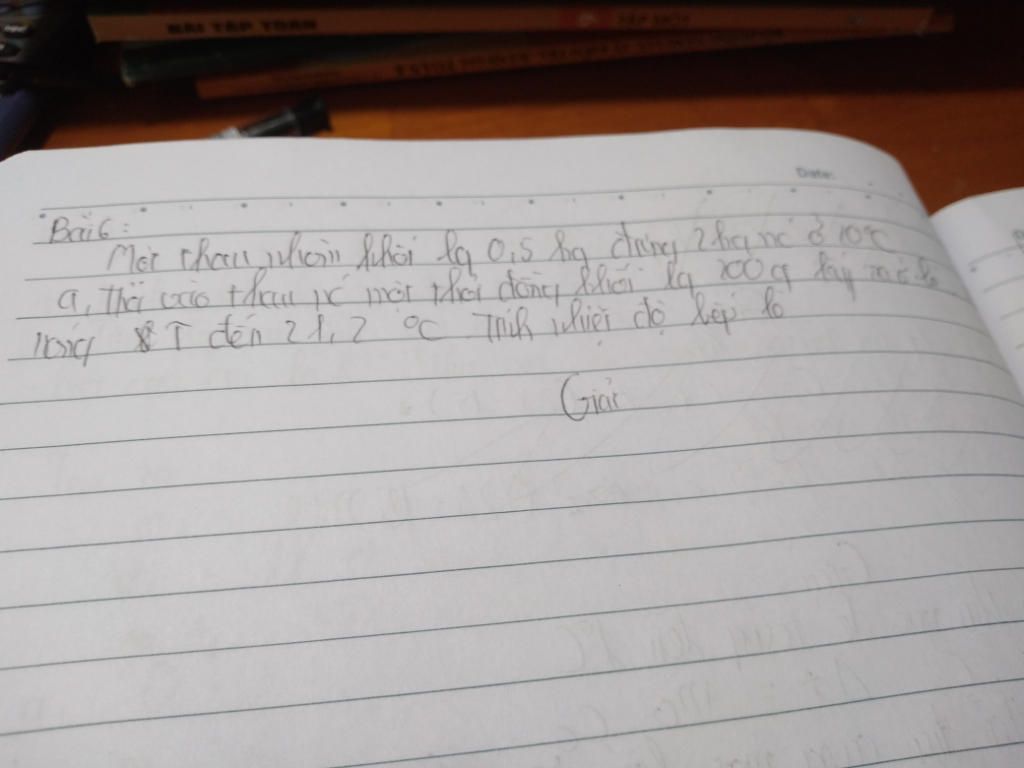 BÀI TẬP TOÁN
Date:
Bài 6:
Một thau nhôm khối lg 0,5 kg đựng 2 kg nc ở 20°C
a, Thả vào thau nc một thỏi đồng khối lg 200g lấy ra ở lò
nóng T đến 21,2 °C Tính nhiệt độ bếp lò
Giải